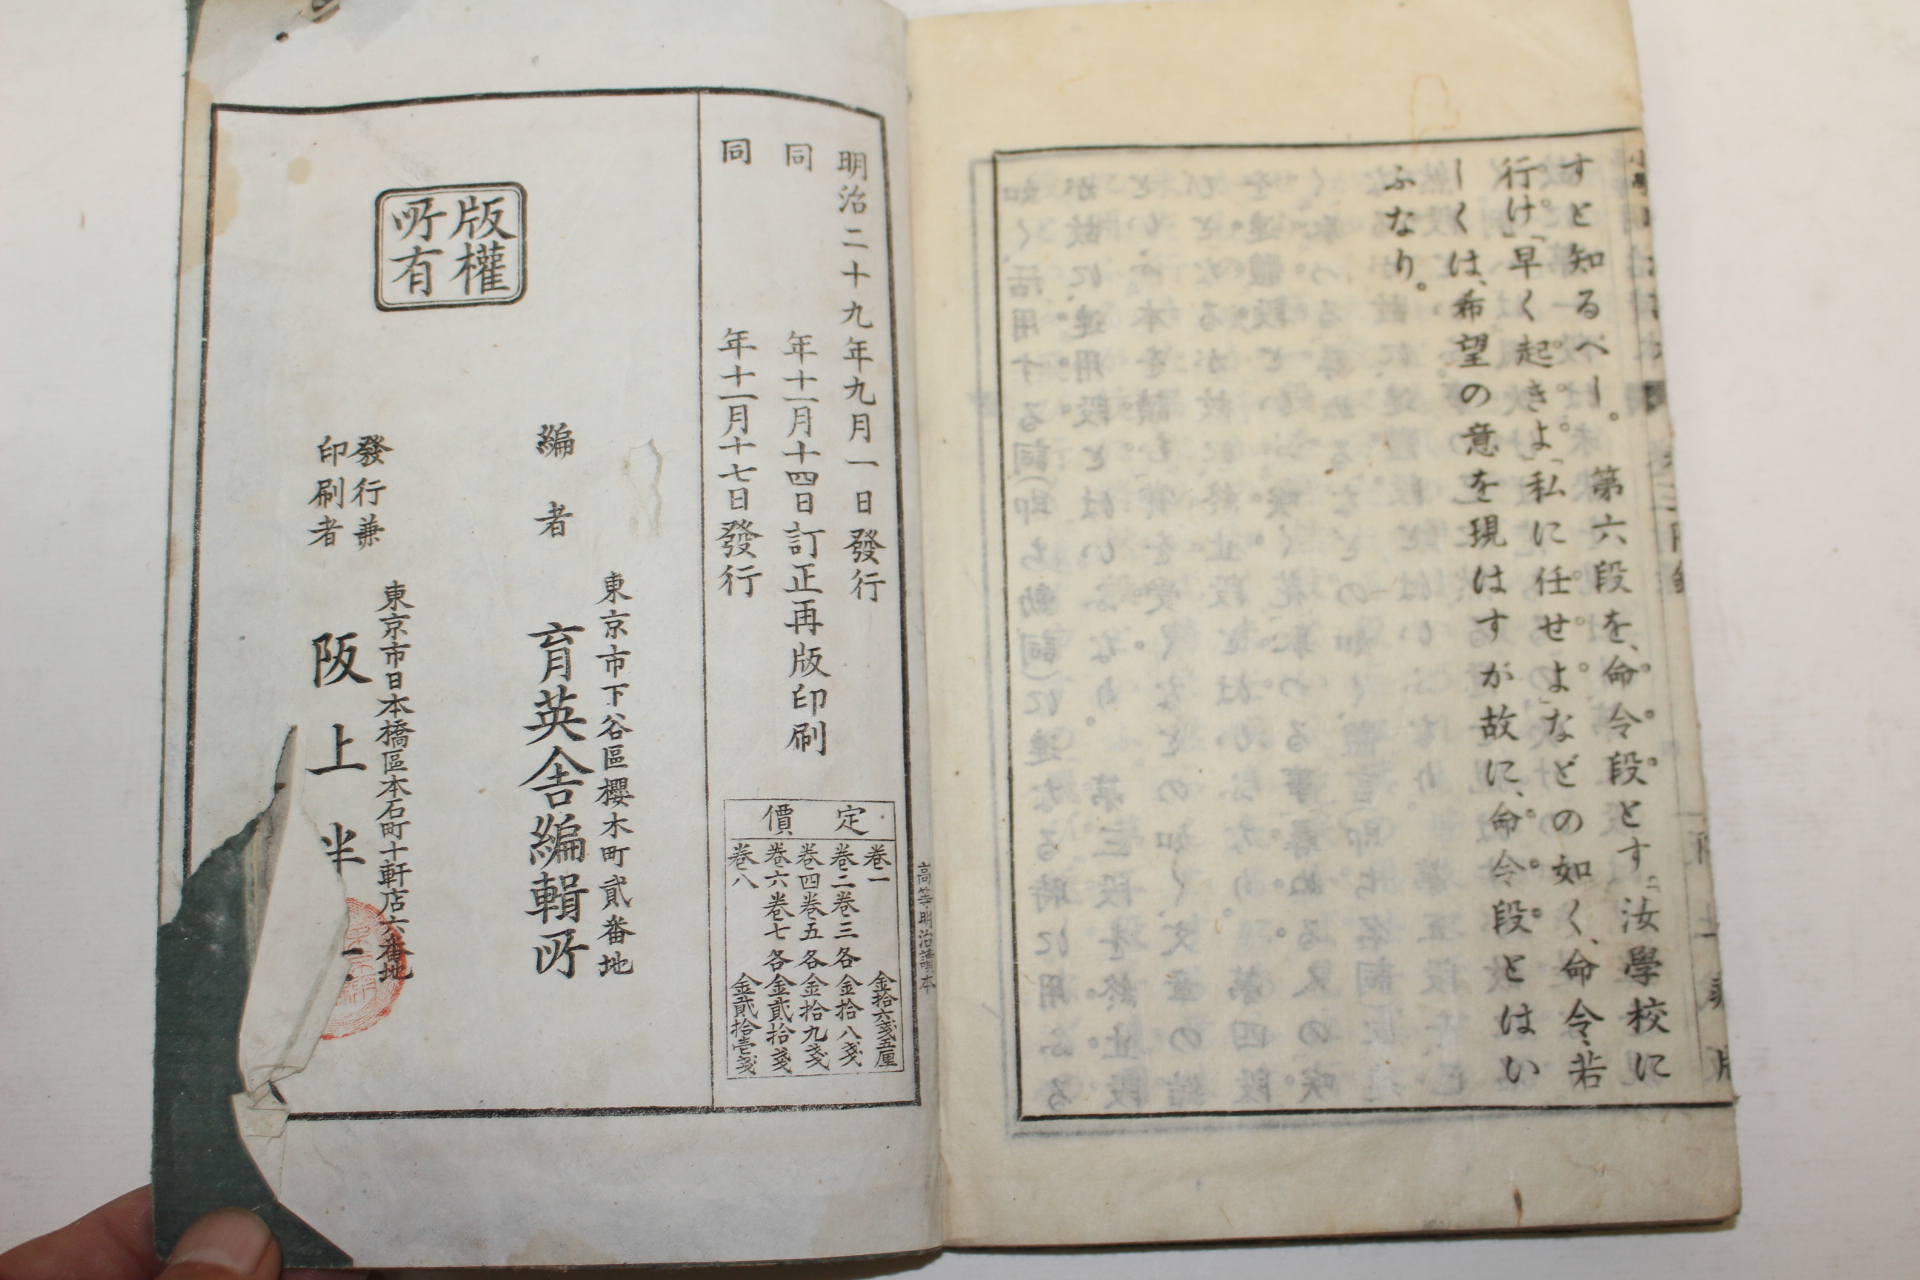 すと知るべし。第六段を、命令段とす。「汝學校に
行け」「早く起きよ」「私に任せよ」などの如く、命令、若
しくは、希望の意を現はすが故に、命令段とはい
ふなり。
明治二十九年九月一日發行
同年十一月十四日訂正再版印刷
同年十一月十七日發行
定價
卷一 金拾六錢五厘
卷二卷三各金拾八錢
卷四卷五各金拾九錢
卷六卷七各金貳拾錢
卷八 金貳拾壱錢
高等明治讀本
版權
所有
東京市下谷區櫻木町貳番地
編者 育英舍編輯所
東京市日本橋區本石町十軒店六番地
發行兼
印刷者
阪上半